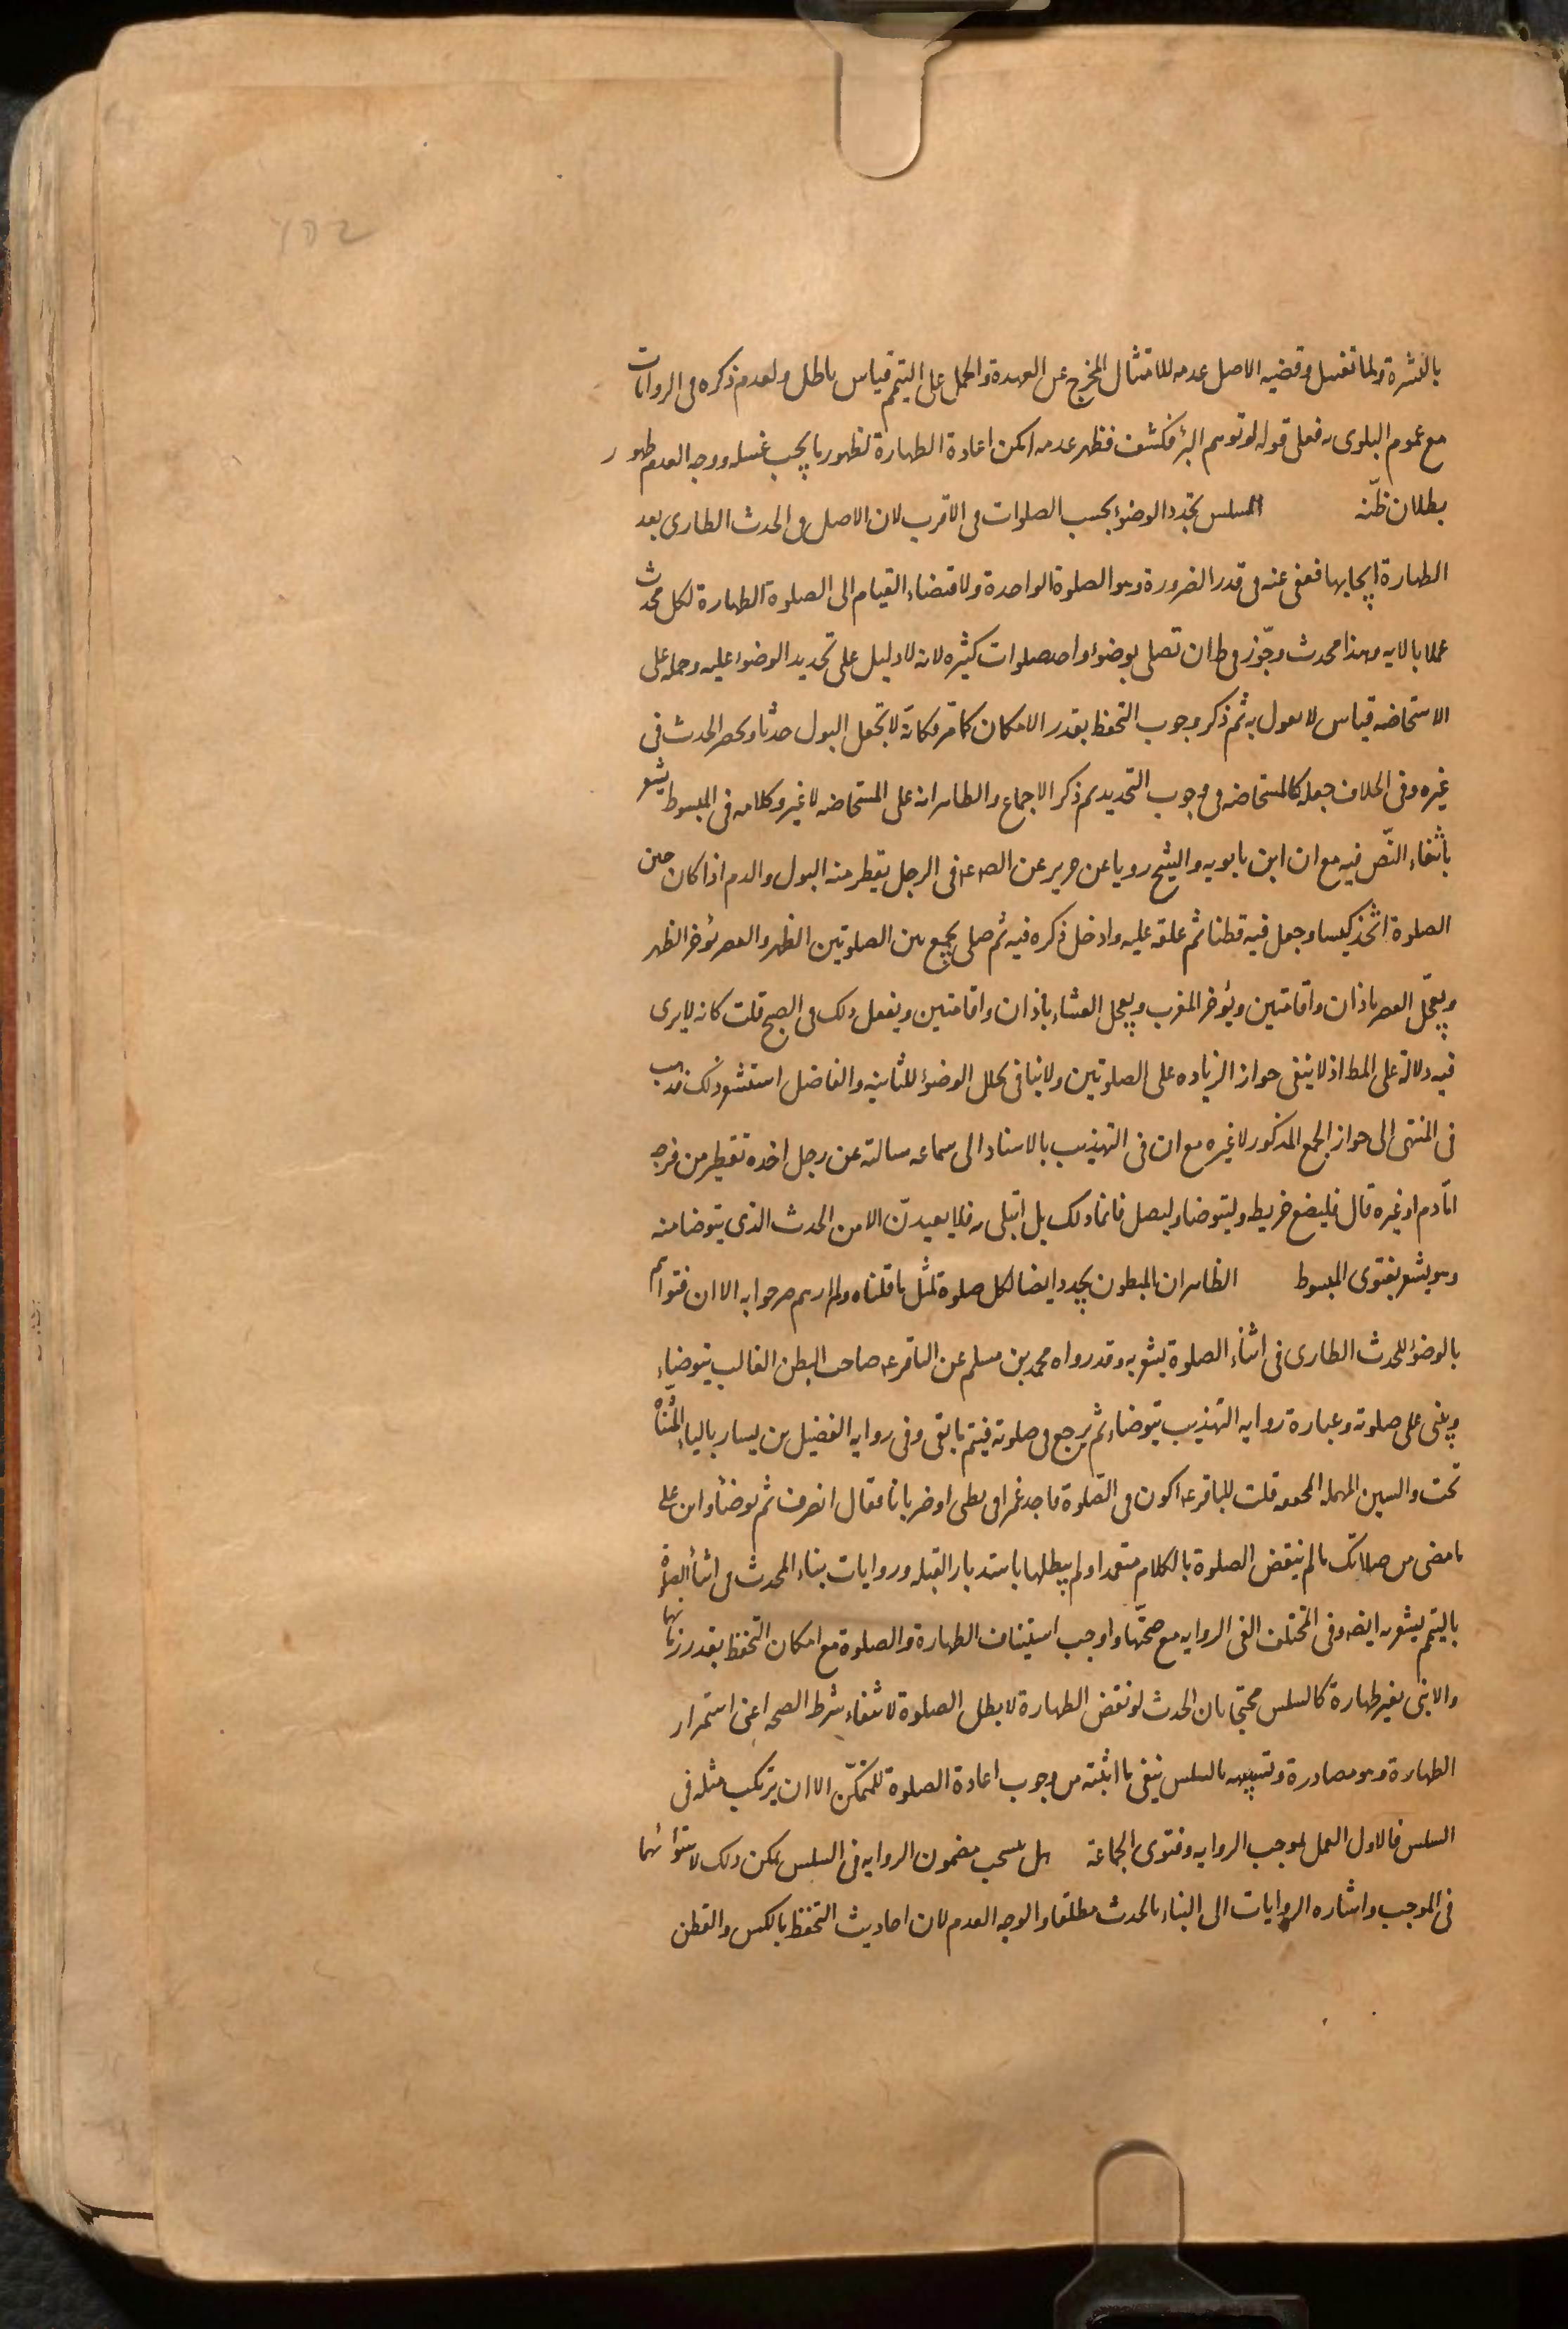 152
بالبشرة ولما تغسل وقضيه الاصل عدمه للامتثال المخرج عن العهدة والحمل على التيمم قياس باطل ولعدم ذكره فى الروايات
مع عموم البلوى به فعلى قوله لو توهم البرؤ فكشف فظهر عدمه امكن اعادة الطهارة لظهور ما يجب غسله ووجه العدم ظهور
بطلان ظنّه السلس يجدد الوضوء بحسب الصلوات فى الاقرب لان الاصل فى الحدث الطارى بعد
الطهارة ايجابها فعفى عنه فى قدر الضرورة وهو الصلوة الواحدة ولاقتضاء القيام الى الصلوة الطهارة لكل محدث
عملا بالايه وهذا محدث وجّوز فى ط ان تصلى بوضوء واحد صلوات كثيره لانه لا دليل على تجديد الوضوء عليه وحمله على
الاستحاضه قياس لا نعول به ثم ذكر وجوب التحفظ بقدر الامكان كما مرّ وكانّه لا يجعل البول حدثا ويحصر الحدث فى
غيره وفى الخلاف جعله كالمستحاضه فى وجوب التجديد ثم ذكر الاجماع والظاهر انه على المستحاضه لا غير وكلامه فى المبسوط يشعر
بانتفاء النّص فيه مع ان ابن بابويه والشيخ رويا عن حريز عن الص عه فى الرجل يقطر منه البول والدم اذا كان حين
الصلوة اتخذ كيسا وجعل فيه قطنا ثم علقه عليه وادخل ذكره فيه ثم صلى يجمع بين الصلوتين الظهر والعصر يؤخر الظهر
ويعجّل العصر باذان واقامتين ويؤخر المغرب ويعجل العشاء باذان واقامتين ويفعل ذلك فى الصبح قلت كانه لا يرى
فيه دلالة على المط اذ لا ينفى جواز الزياده على الصلوتين ولا ينافى تخلل الوضوء للثانيه والفاضل استشعر ذلك فذهب
فى المنتهى الى جواز الجمع المذكور لا غيره مع ان فى التهذيب بالاسناد الى سماعه سالته عن رجل اخذه تقطير من فرجه
امّا دم او غيره قال فليضع خريطه وليتوضا وليصل فانما ذلك بلاء ابتلى به فلا يعيدنّ الا من الحدث الذى يتوضا منه
وهو يشعر بفتوى المبسوط الظاهر ان المبطون يجدد ايضا لكل صلوة لمثل ما قلناه ولم ارهم صرحوا به الا ان فتواهم
بالوضوء للحدث الطارى فى اثناء الصلوة يشعر به وقد رواه محمد بن مسلم عن الباقر عه صاحب البطن الغالب يتوضاء
ويبنى على صلوته وعبارة روايه التهذيب يتوضاء ثم يرجع فى صلوته فيتم ما بقى وفى روايه الفضيل بن يسار بالياء المثناة
تحت والسين المهمله المخففه قلت للباقر عه اكون فى الصّلوة فاجد غمزا فى بطنى او ضربانا فقال انصرف ثم توضأ وابن على
ما مضى من صلاتك ما لم تنقض الصلوة بالكلام متعمدا ولم يبطلها باستدبار القبله وروايات بناء المحدث فى اثناء الصلوة
بالتيمم يشعر به ايضه وفى المختلف الغى الروايه مع صحّتها واوجب استيناف الطهارة والصلوة مع امكان التحفظ بقدر زمانها
والا بنى بغير طهارة كالسلس محتجا بان الحدث لو نقض الطهارة لابطل الصلوة لانتفاء شرط الصحه اعنى استمرار
الطهارة وهو مصادرة وتشبيهه بالسلس ينفى ما اثبته من وجوب اعادة الصلوة للمتمكّن الا ان يرتكب مثله فى
السلس فالاولى العمل بموجب الروايه وفتوى الجماعة هل ينسحب مضمون الروايه فى السلس يمكن ذلك لاستوائهما
فى الموجب واشاره الروايات الى البناء بالحدث مطلقا والوجه العدم لان احاديث التحفظ بالكيس والقطن